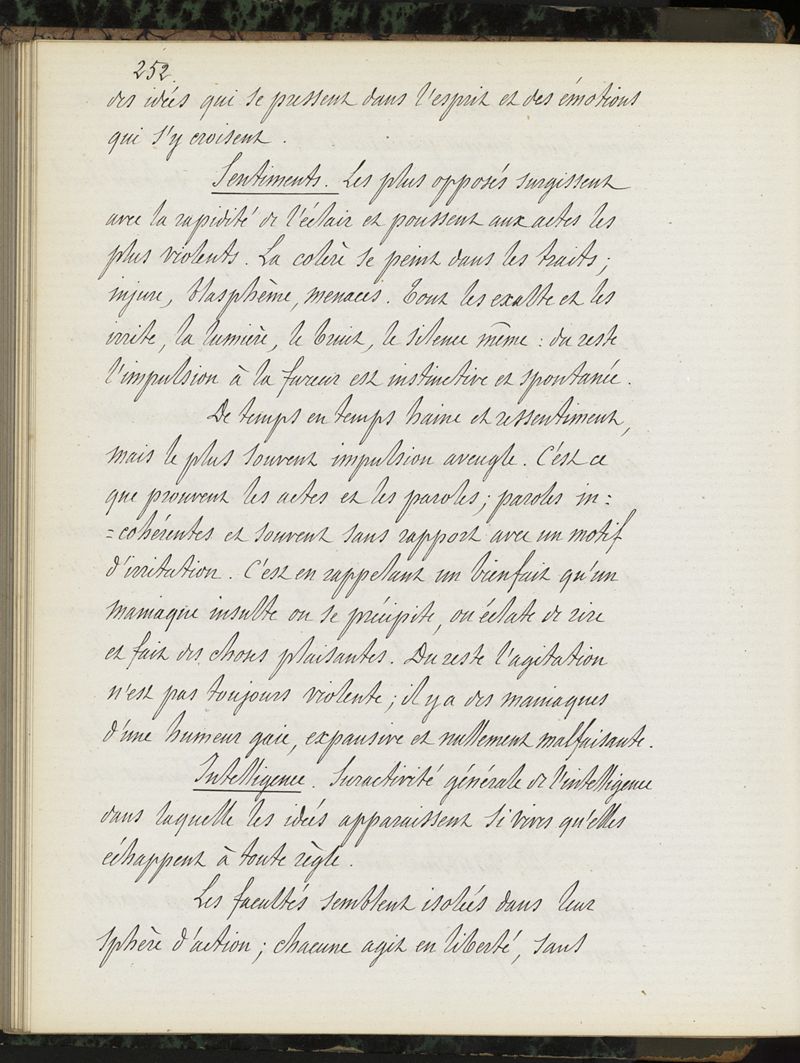 252.
des idées qui se pressent dans l'esprit et des émotions
qui s'y croisent.
Sentiments. Les plus opposés surgissent
avec la rapidité de l'éclair et poussent aux actes les
plus violents. La colère se peint dans les traits;
injure, blasphème, menaces. Tout les exalte et les
irrite, la lumière, le bruit, le silence même : du reste
l'impulsion à la fureur est instinctive et spontanée.
De temps en temps haine et ressentiment,
mais le plus souvent impulsion aveugle. C'est ce
que prouvent les actes et les paroles; paroles in=
=cohérentes et souvent sans rapport avec un motif
d'irritation. C'est en rappelant un bienfait qu'un
maniaque insulte ou se précipite, ou éclate de rire
et fait des choses plaisantes. Du reste l'agitation
n'est pas toujours violente; il y a des maniaques
d'une humeur gaie, expansive et nullement malfaisante.
Intelligence. Suractivité générale de l'intelligence
dans laquelle les idées apparaissent si vives qu'elles
échappent à toute règle.
Les facultés semblent isolées dans leur
sphère d'action; chacune agit en liberté, sans